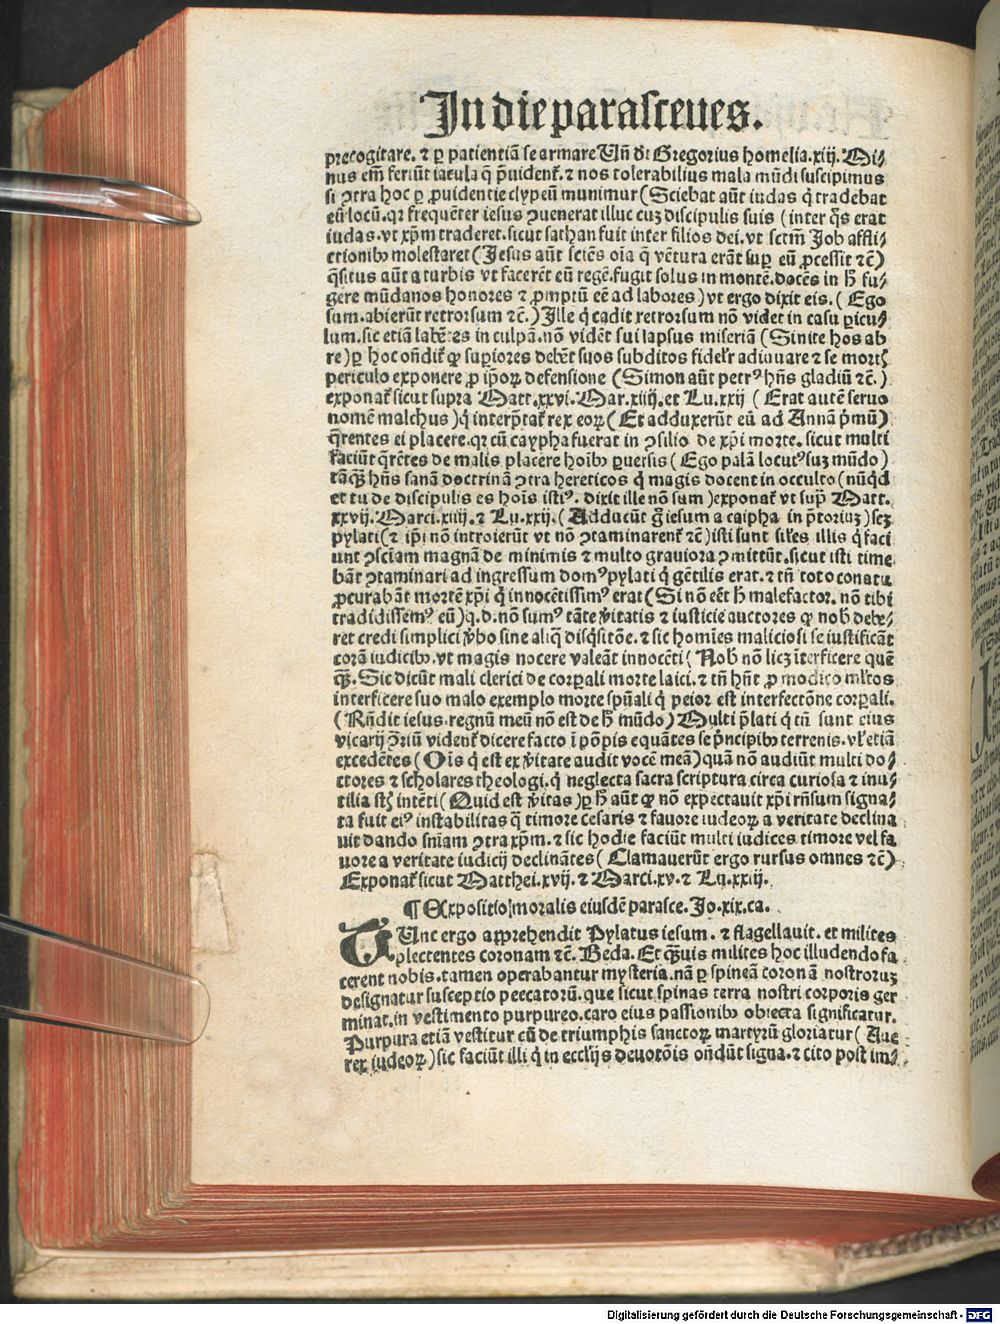 In die parasceues.
precogitare. ⁊ ꝑ patientiā se armare Vn̄ dt Gregorius homelia.xiij. Mi⸗
nus em̄ feriūt iacula q̄ p̄uident᷑. ⁊ nos tolerabilius mala mūdi suscipimus
si ↄtra hoc ꝑ ꝓuidentie clypeū munimur (Sciebat aūt iudas q̇ tradebat
eū locū.qꝛ frequēter iesus ↄuenerat illuc cuꝫ discipulis suis (inter q̄s erat
iudas.vt xp̄m traderet.sicut sathan fuit inter filios dei.vt sctm̄ Job affli⸗
ctionibꝰ molestaret (Jesus aūt sciēs oīa q̄ vētura erāt suꝑ eū ꝓcessit ⁊c̄)
q̄situs aūt a turbis vt facerēt eū regē.fugit solus in montē.docēs in h̄ fu⸗
gere mūdanos honores ⁊ ꝓmptū eē ad labores) vt ergo dixit eis. (Ego
sum.abierūt retrorsum ⁊c̄.) Jlle q̇ cadit retrorsum nō videt in casu ꝑicu⸗
lum.sic etiā labētes in culpā.nō vidēt sui lapsus miseriā (Sinite hos ab
re) ꝑ hoc on̄dit᷑ ꝙ suꝑiores debēt suos subditos fidelr̄ adiuuare ⁊ se mort᷑
periculo exponere ꝓ ip̄oꝝ defensione (Simon aūt petrꝰ hn̄s gladiū ⁊c̄.)
exponat᷑ sicut supra Matt.xxvi.Mar.xiiij.et Lu.xxij (Erat autē seruo
nomē malchus) q̇ interp̄tat᷑ rex eoꝝ (Et adduxerūt eū ad Annā p̄mū)
q̄rentes ei placere.qꝛ cū caypha fuerat in ↄsilio de xp̄i morte. sicut multi
faciūt q̄rētes de malis placere hoībꝰ ꝑuersis (Ego palā locutꝰ suꝫ mūdo)
tāqꝫ hn̄s sanā doctrinā ↄtra hereticos q̇ magis docent in occulto (nūqd
et tu de discipulis es hoīs istiꝰ. dixit ille nō sum) exponat᷑ vt supͣ Matt.
xxvij.Marci.xiiij.⁊ Lu.xxij. (Adducūt g̊ iesum a caipha in p̄toriuꝫ) sez
pylati (⁊ ip̄i nō introierūt vt nō ↄtaminarent᷑ ⁊c̄) isti sunt sil̄es illis q̇ faci
unt ↄsciam magnā de minimis ⁊ multo grauiora ↄmittūt.sicut isti time
bāt ↄtaminari ad ingressum domꝰ pylati q̇ gētilis erat.⁊ tn̄ toto conatu
ꝓcurabāt mortē xp̄i q̇ innocētissimꝰ erat (Si nō eēt h̄ malefactor. nō tibi
tradidissemꝰ eū) q.d.nō sumꝰ tāte v̄itatis ⁊ iusticie auctores ꝙ nob̄ debe⸗
ret credi simplici v̄bo sine aliq̄ disq̄sitōe. ⁊ sic homīes maliciosi se iustificāt
corā iudicibꝰ.vt magis nocere valeāt innocēti (Nob̄ nō licꝫ īterficere quē
qꝫ̄. Sic dicūt mali clerici de corꝑali morte laici.⁊ tn̄ hn̄t ꝓ modico ml̄tos
interficere suo malo exemplo morte spūali q̇ peior est interfectōne corꝑali.
(Rn̄dit iesus.regnū meū nō est de h̄ mūdo) Multi p̄lati q̇ tn̄ sunt eius
vicarij ↄriū vident᷑ dicere facto ī pōpis equātes se p̄ncipibꝰ terrenis.vl̄ etiā
excedētes (Ois q̇ est ex v̄itate audit vocē meā) quā nō audiūt multi do⸗
ctores ⁊ scholares theologi.q̇ neglecta sacra scriptura circa curiosa ⁊ inu⸗
tilia st᷑ intēti (Quid est v̄itas) ꝑ h̄ aūt ꝙ nō expectauit xp̄i rn̄sum signa⸗
ta fuit eiꝰ instabilitas q̄ timore cesaris ⁊ fauore iudeoꝝ a veritate declina
uit dando sniam ↄtra xp̄m.⁊ sic hodie faciūt multi iudices timore vel fa
uore a veritate iudicij declinātes (Clamauerūt ergo rursus omnes ⁊c̄)
Exponat᷑ sicut Matthei.xvij.⁊ Marci.xv.⁊ Lu.xxiij.
¶ Expositio moralis eiusdē parasce. Jo.xix.ca.
TUnc ergo apprehendit Pylatus iesum.⁊ flagellauit. et milites
plectentes coronam ⁊c̄. Beda. Et qꝫ̄uis milites hoc illudendo fa
cerent nobis.tamen operabantur mysteria.nā ꝑ spineā coronā nostroruꝫ
designatur susceptio peccatorū.que sicut spinas terra nostri corporis ger
minat.in vestimento purpureo.caro eius passionibꝰ obiecta significatur.
Purpura etiā vestitur cū de triumphis sanctoꝝ martyrū gloriatur (Aue
rex iudeoꝝ) sic faciūt illi q̇ in eccl̄ijs deuotōis ondūt signa.⁊ cito post im⸗
Digitalisierung gefördert durch die Deutsche Forschungsgemeinschaft - DFG